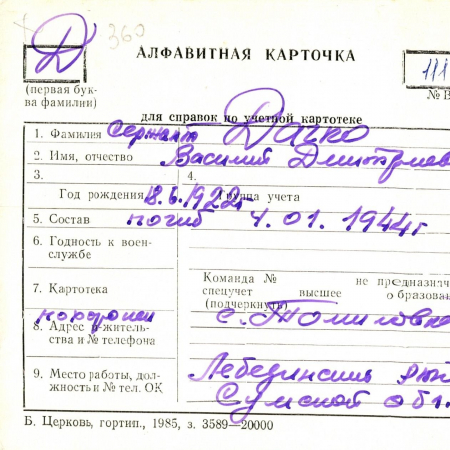 Д 360
АЛФАВИТНАЯ КАРТОЧКА
111
(первая бук-
ва фамилии)
№ В
для справок по учетной картотеке
1. Фамилия сержант Дачко
2. Имя, отчество Василий Дмитриев
3. 4.
Год рождения 18.6.1922г. Группа учета
5. Состав погиб 4.01.1944г
6. Годность к воен-
службе
Команда № не предназнач
7. Картотека спецучет высшее образова
(подчеркнуть) о
похоронен с. Томиловка
8. Адрес о-житель-
ства и № телефона
9. Место работы, дол- Лебединский
жность и № тел. ОК Сумской обл.
Б. Церковь, гортип., 1985, з. 3589—20000